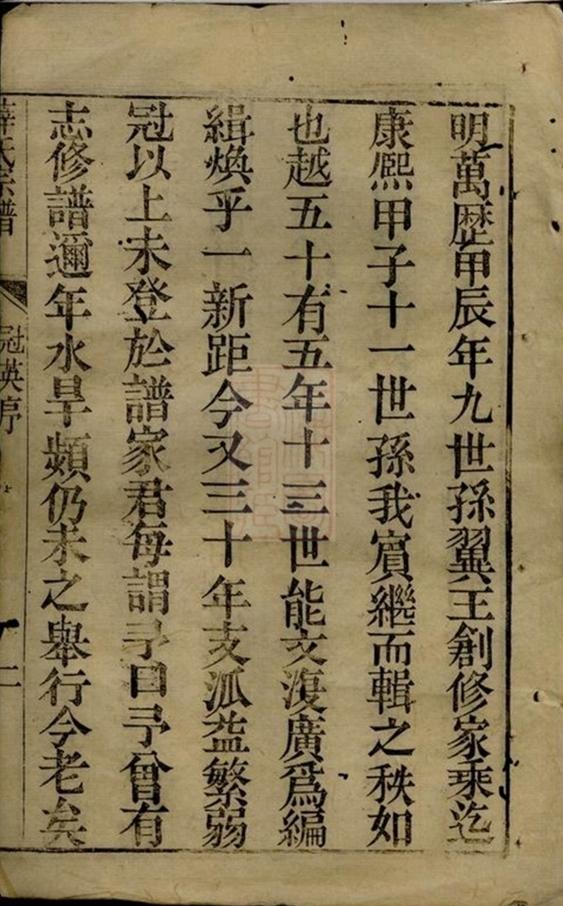 明萬歴甲辰年九世孫翼王創修家乘迄
康熈甲子十一世孫我賓繼而輯之秩如
也越五十有五年十三世能文復廣為編
緝煥乎一新距今又三十年支派益繁弱
冠以上未登於譜家君每謂予曰予曾有
志修譜邇年水旱頻仍未之舉行今老矣
薛氏宗譜
冠英序
二